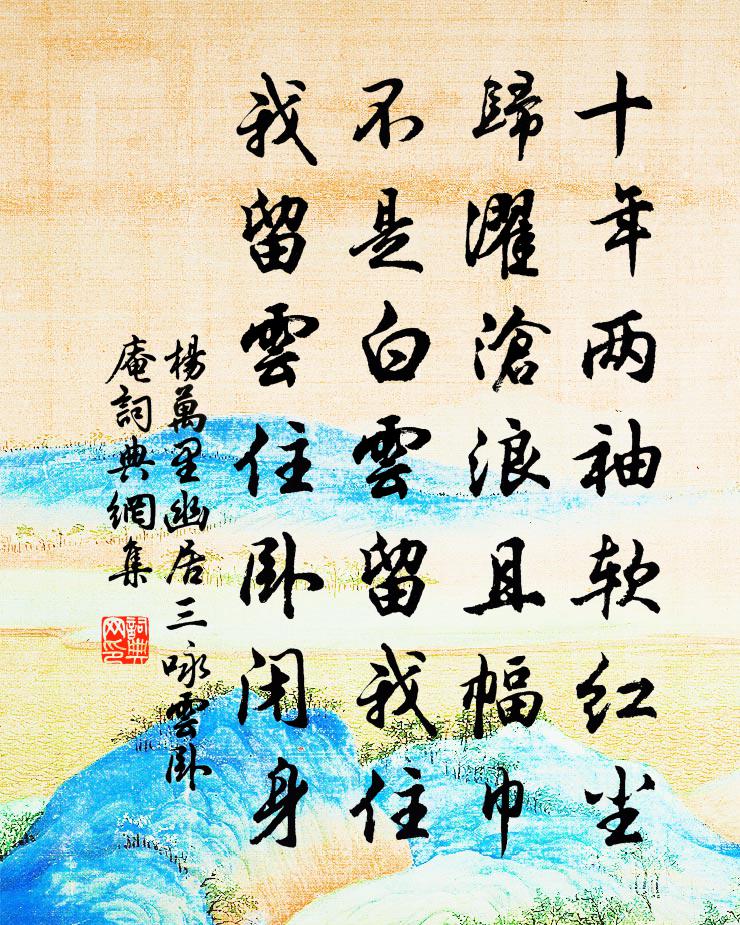 十年两袖软红尘
歸濯滄浪且幅巾
不是白雲留我住
我留雲住卧闭身
楊萬里幽居三咏雲卧
庵詞典網集
詞典网印